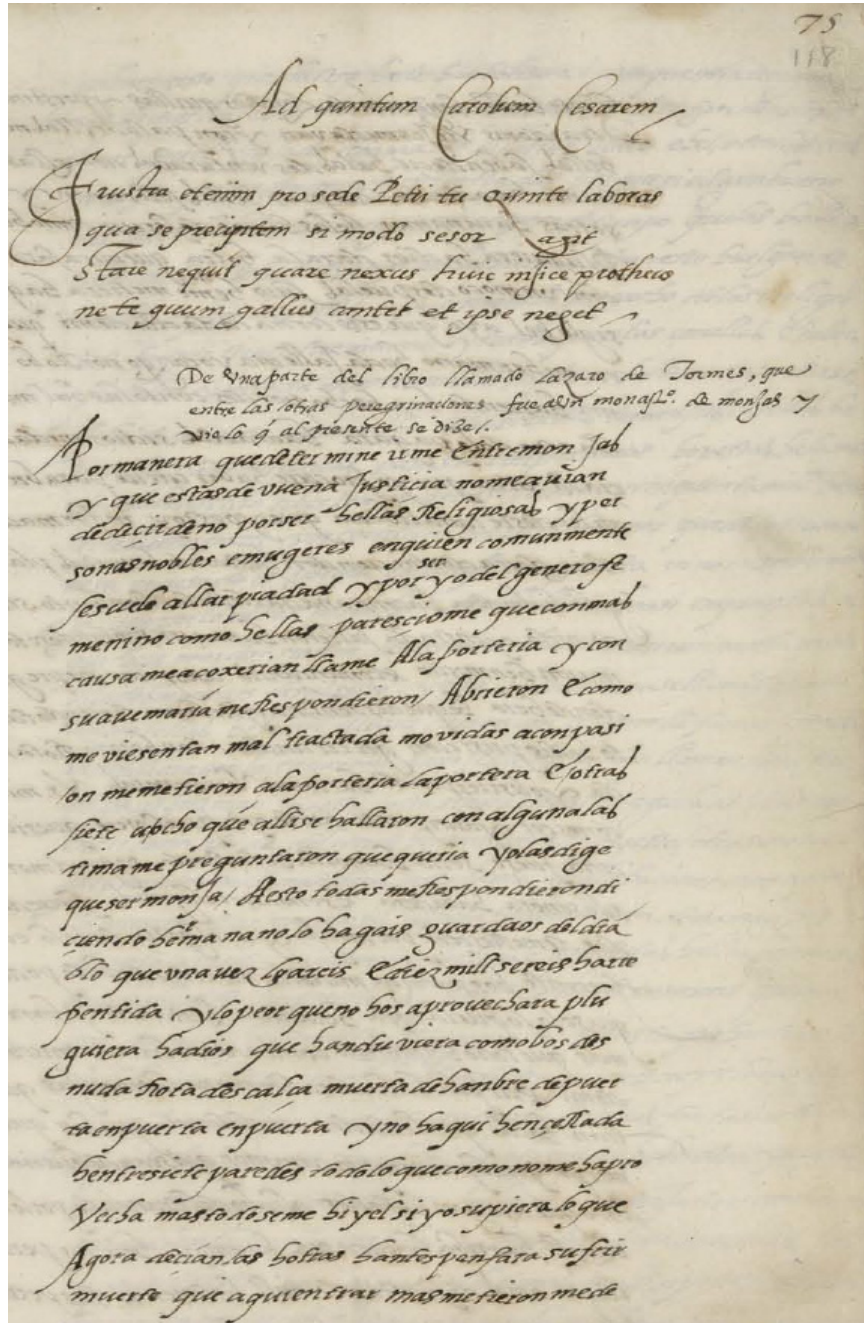 75
118
Ad quintum Carolum Cesarem
Frustra etenim pro sede Petri tu quinte laboras
qua se precipitem si modo sesor agit
Stare nequit quare nexus huic insice protheus
ne te quum gallus cantet et ipse neget
De vna parte del libro llamado Lazaro de Tormes, que
entre las otras peregrinaciones fue a vn monastº. de monjas y
vio lo q̃ al presente se dize/.
Por manera que determine irme entre monjas
y que estas de vuena justicia no me avian
de decir de no por ser hellas Religiosas y per
sonas nobles e mugeres en quien comunmente
se suele allar piadad y por ser yo del genero fe
menino como hellas paresciome que con mas
causa me acoxerian llame A la porteria y con
su ave maria me Respondieron/ Abrieron E como
me viesen tan mal tractada movidas a conpasi
on me metieron a la porteria la portera E otras
siete u ocho que alli se hallaron con alguna las
tima me preguntaron que queria yo las dige
que ser monja/ A esto todas me Respondieron di
ciendo hermana no lo hagais guardaos del dia
blo que vna vez lo hareis E diez mill sereis harre
pentida y lo peor que no hos aprovechara plu
guiera ha dios que handuviera como bos des
nuda Rota descalça muerta de hanbre de puer
ta en puerta en puerta y no ha qui hencerrada
hentre siete paredes todo lo que como no me hapro
Vecha mas todo se me hiyel si yo supiera lo que
Agora decian las hotras hantes pensara sufrir
muerte que aqui entrar mas metieron me de